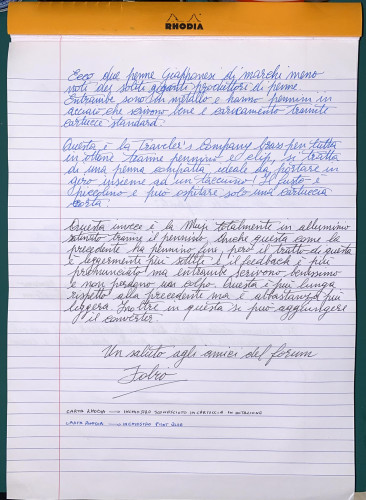 RHODIA
Ecco due penne Giapponesi di marchi meno
noti dei soliti giganti produttori di penne.
Entrambe sono in metallo e hanno pennini in
acciaio che scrivono bene e caricamento tramite
cartucce standard.
Questa è la Traveler's Company brass pen tutta
in ottone tranne pennino e clip, si tratta
di una penna compatta ideale da portare in
giro insieme ad un taccuino! Il fusto è
piccolino e può ospitare solo una cartuccia
corta.
Questa invece è la Muji totalmente in alluminio
satinato tranne il pennino. Anche questa come la
precedente ha pennino fine però il tratto di questa
è leggermente più sottile e il feedback è più
pronunciato ma entrambe scrivono benissimo
e non perdono un colpo. Questa è più lunga
rispetto alla precedente ma è abbastanza più
leggera. Inoltre in questa si può aggiungere
il converter.
Un saluto agli amici del forum
Fabro
CARTA RHODIA INCHIOSTRO SCONOSCIUTO IN CARTUCCIA IN DOTAZIONE
CARTA RHODIA INCHIOSTRO BLUE